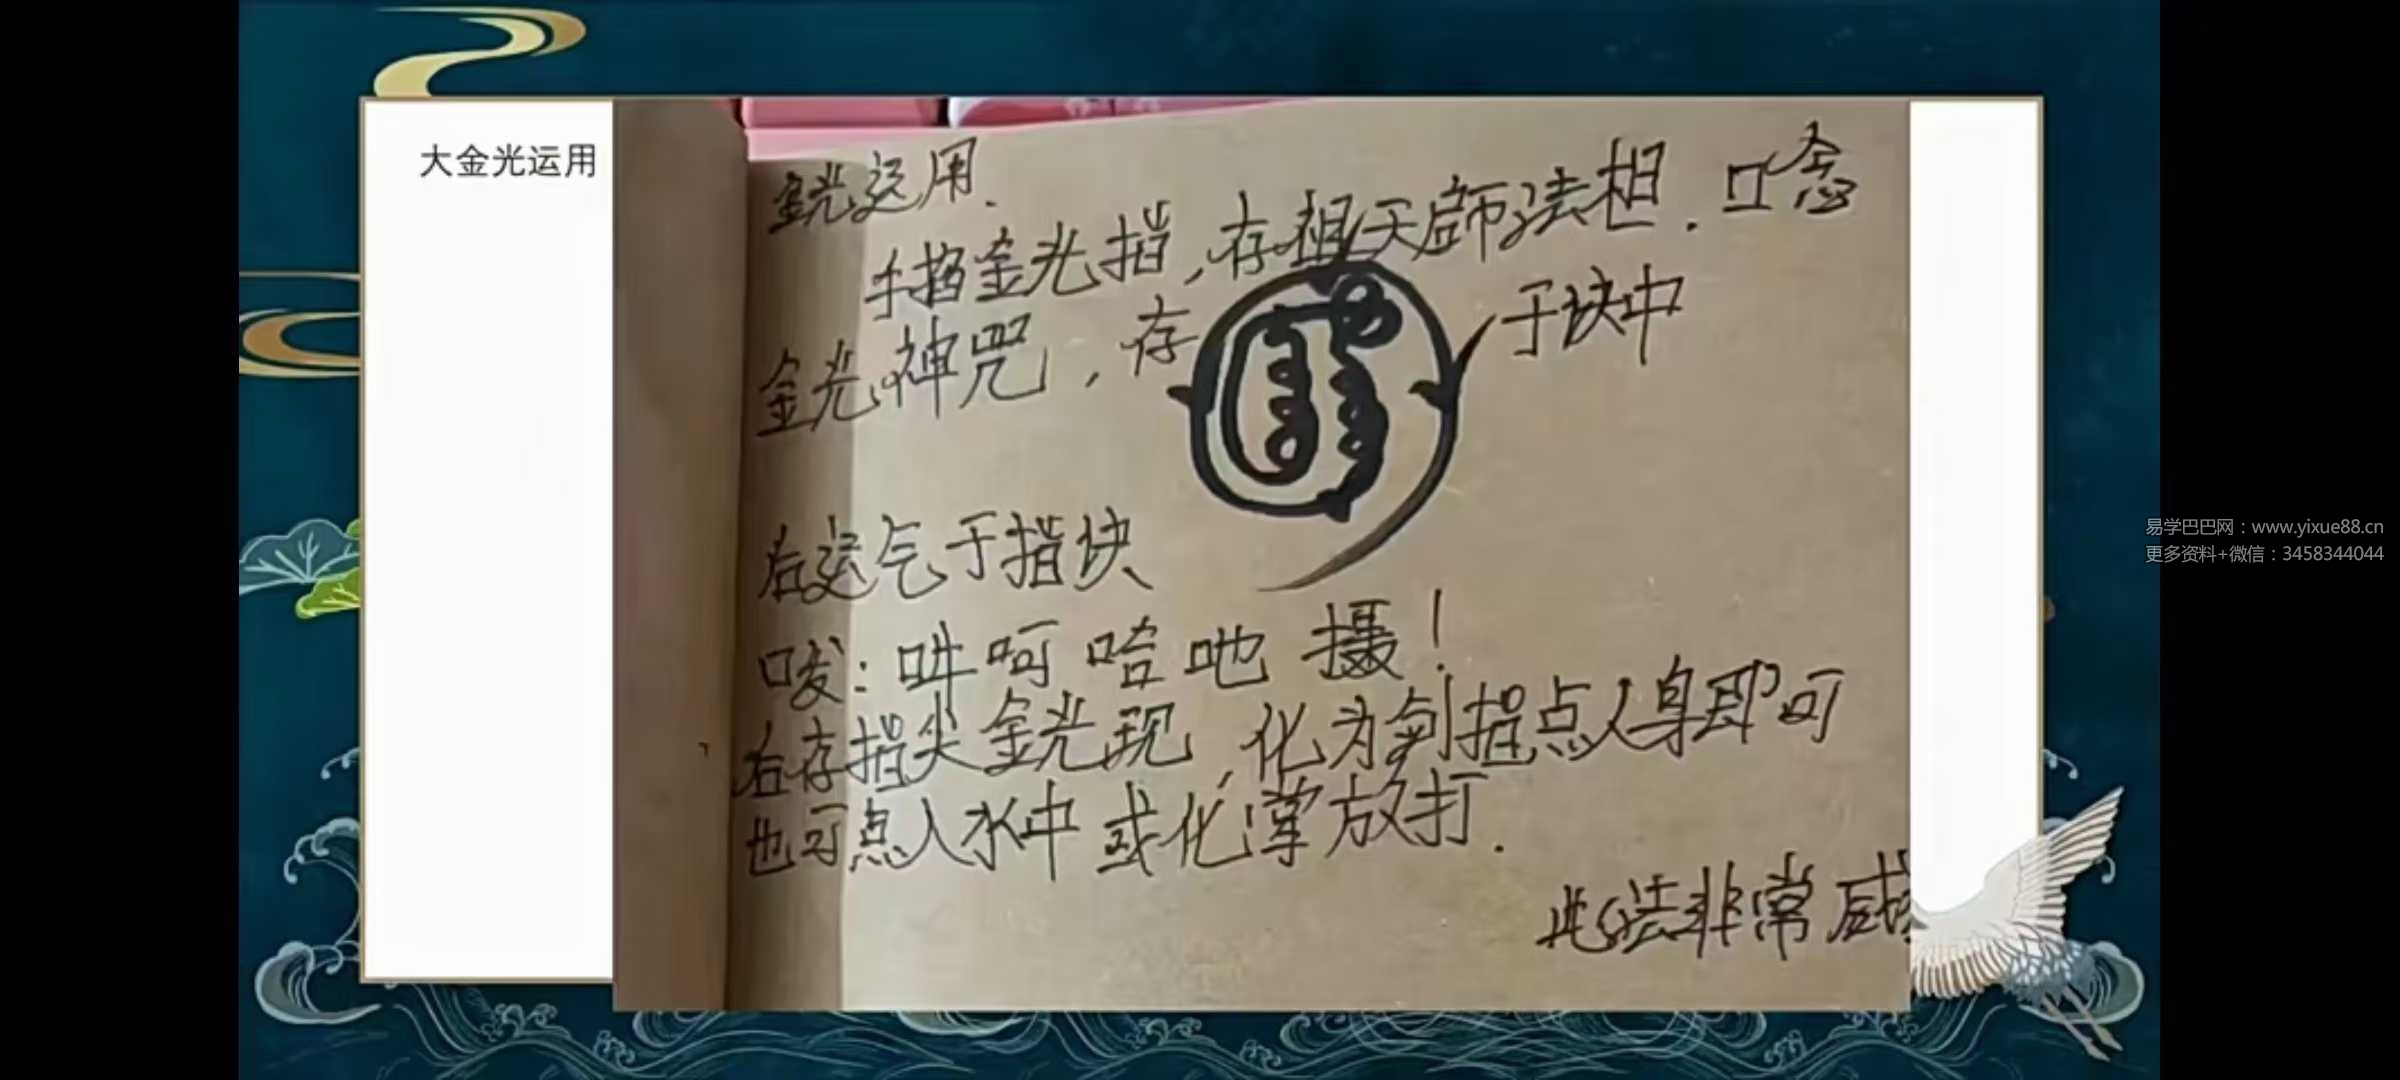 大金光运用
金光运用.
手掐金光指,存祖天师法相.口念
金光神咒,存 于块中
后运气于指块
唆:吽呵哈吔摄!
右存指尖金光现,化为剑指点人身即可
也可点入水中或化掌放打.
此法非常
易学巴巴网：www.yixue88.cn
更多资料+微信：3458344044